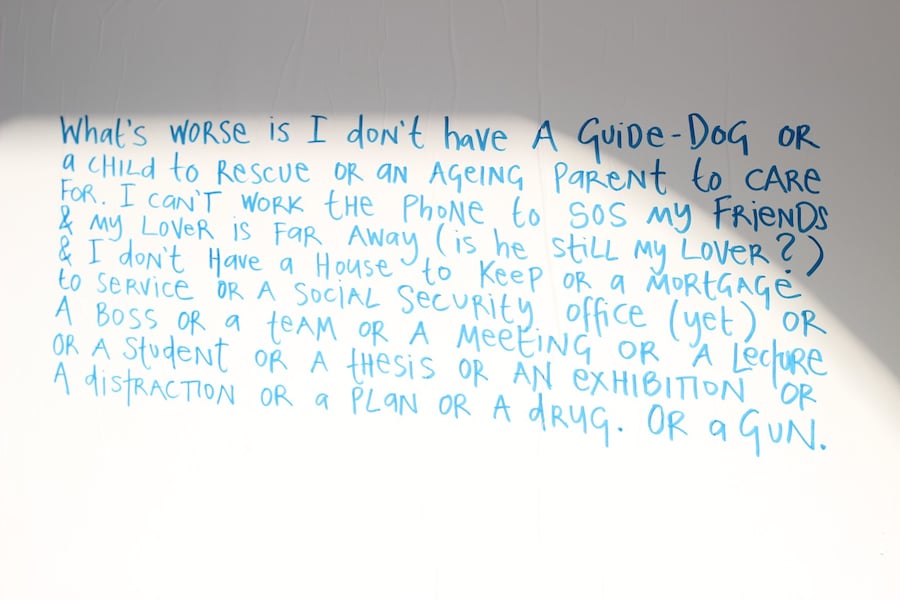 What's WORSE is I don't have A GuiDe-DoG OR
a CHiLd to RESCUE OR an AGeiNG PareNt to CARE
FOR. I CaN'T WORK tHE PhoNE to SOS my FRieNDS
& my LoveR is FaR AWay (is he still my LoveR?)
& I doN't Have a House to Keep OR a MORtGaGe
to SeRViCe OR A SociAL SecURity office (yet) OR
A Boss OR a teaM OR A MeetiNG OR A LectuRe
OR A StudeNt OR A tHesis OR AN eXHIBITION OR
A distRACTION OR a PLaN OR A dRUG. OR a GUN.